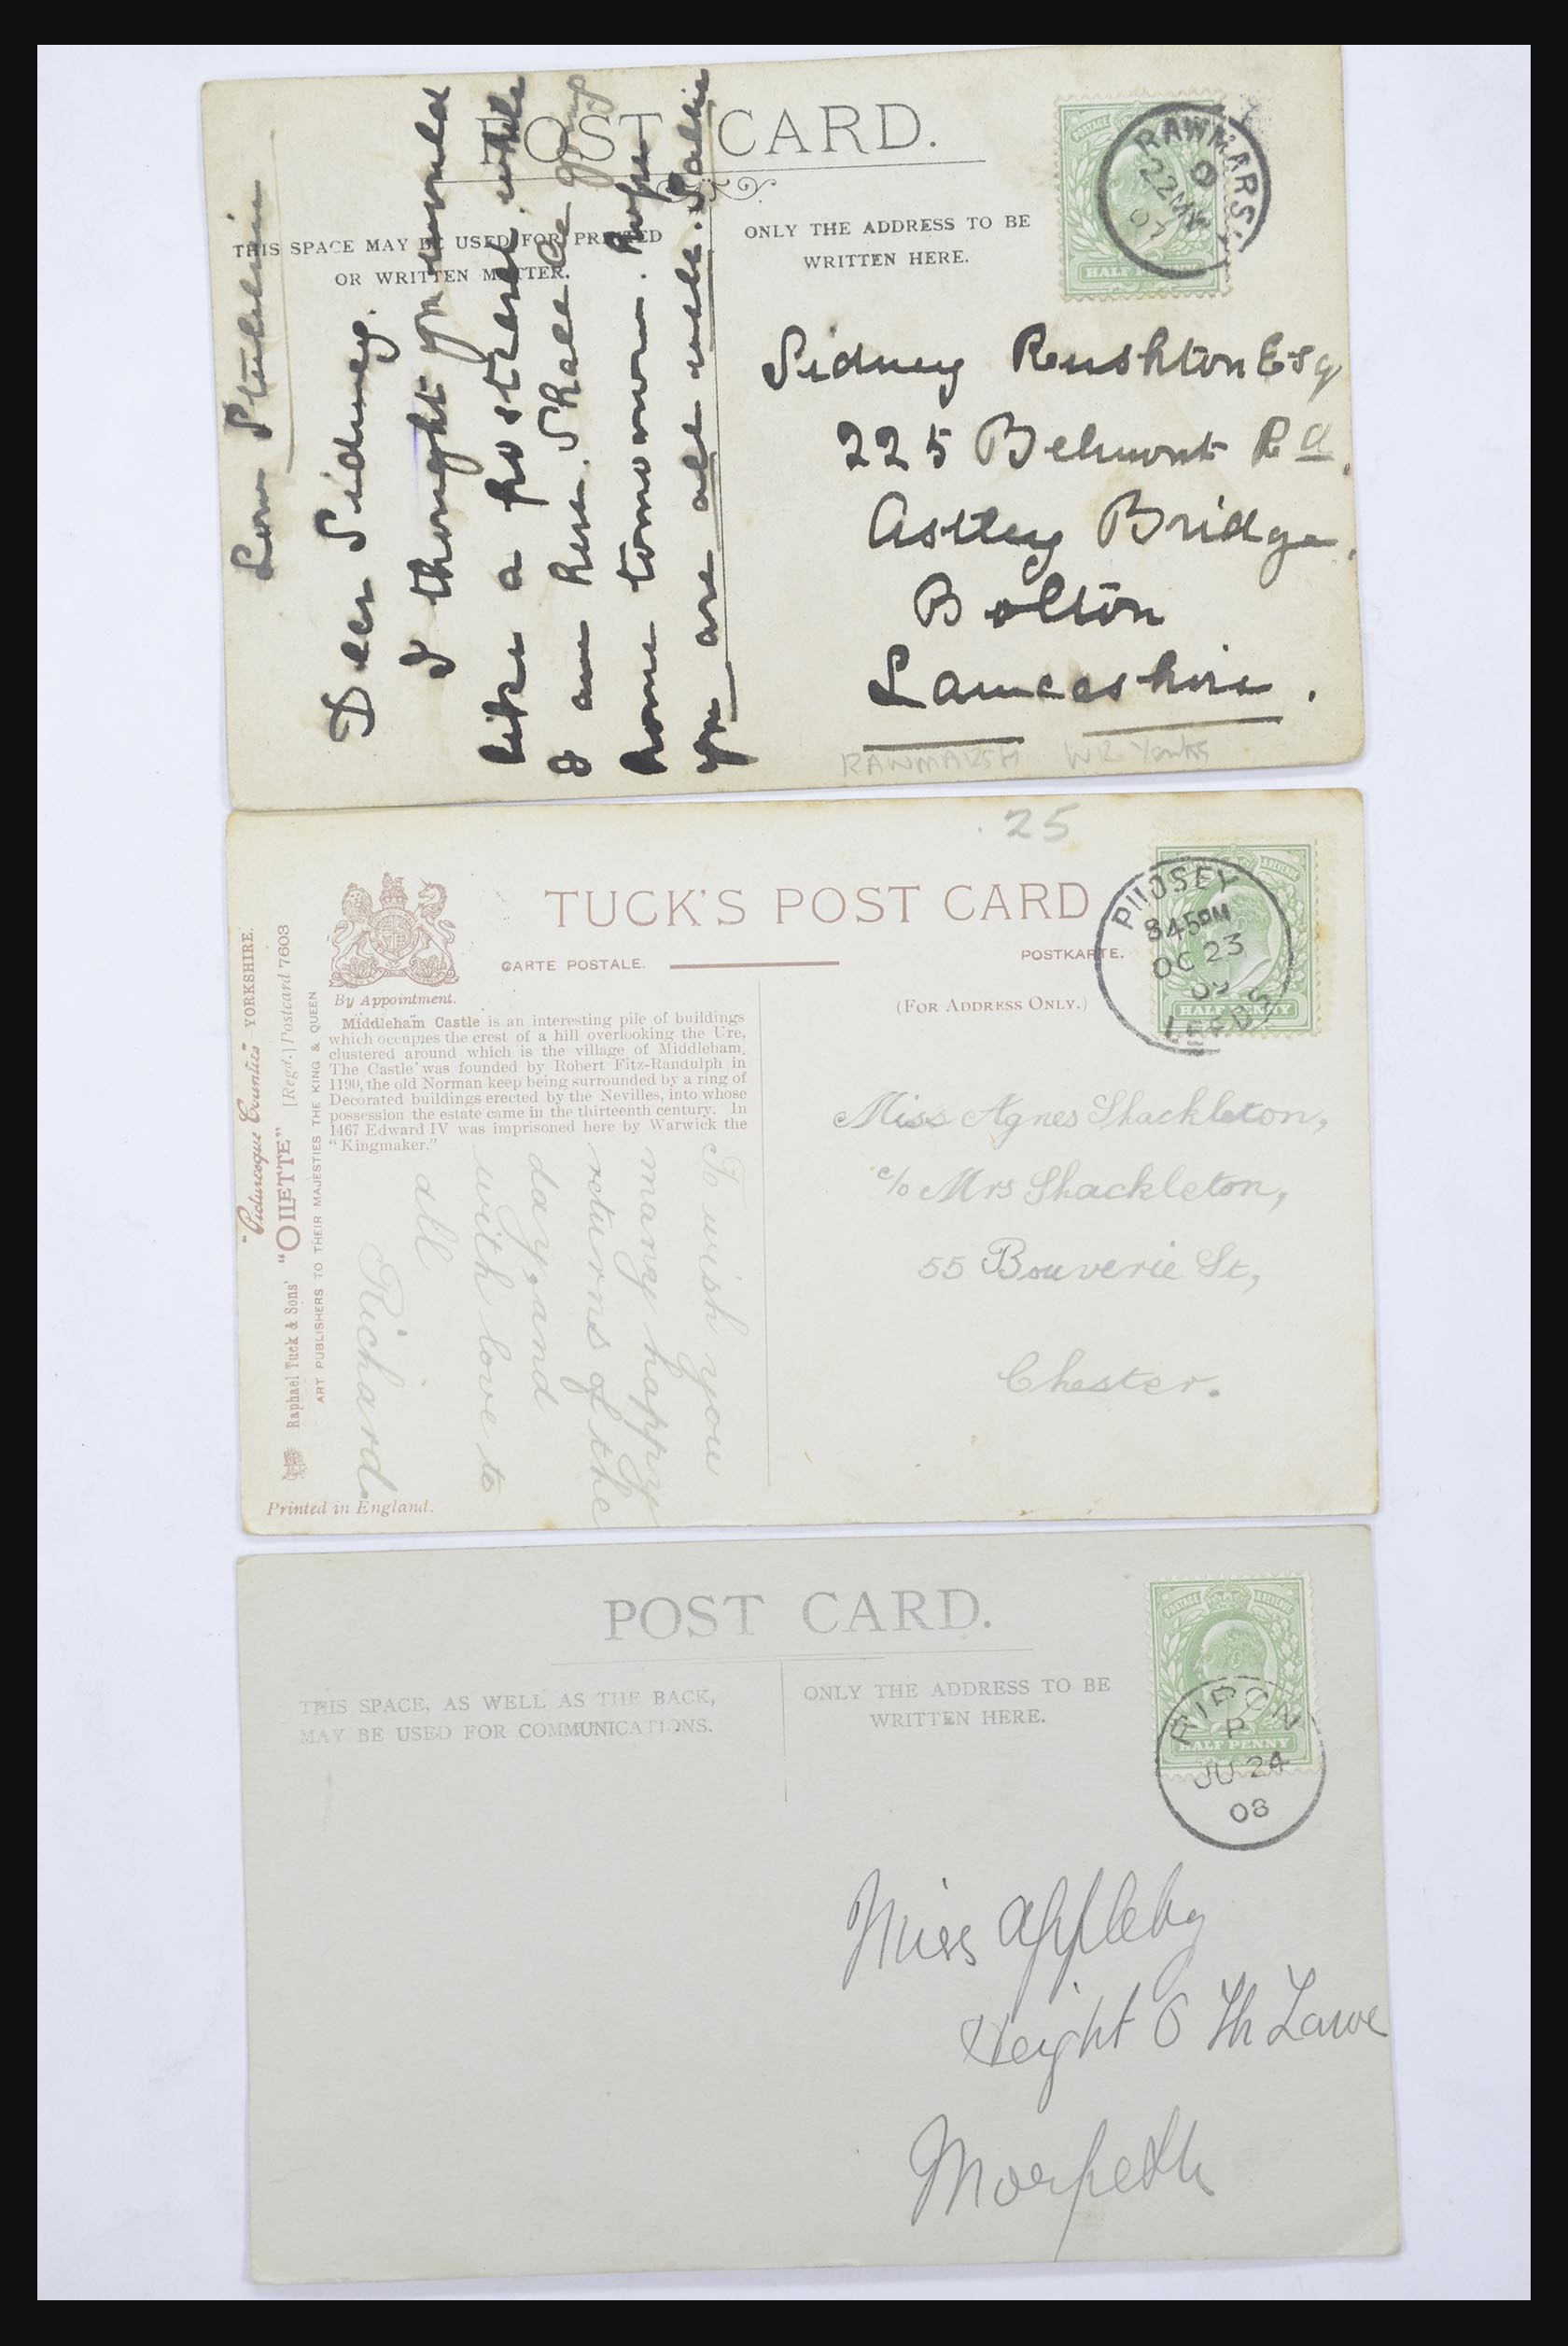 POST CARD.
THIS SPACE MAY BE USED FOR PRINTED
OR WRITTEN MATTER.
ONLY THE ADDRESS TO BE
WRITTEN HERE.
RAWMARSH
22 MY
07
HALF PENNY
Dear Sidney.
I thought you would
like a postcard while
I am here. Shall be going
home tomorrow. Hope
you are all well. Sallie
Sidney Rushton Esq
225 Belmont Rd.
Astley Bridge.
Bolton
Lancashire.
RAWMARSH WR Yorks
25
TUCK'S POST CARD
CARTE POSTALE.
POSTKARTE.
(FOR ADDRESS ONLY.)
By Appointment.
PUDSEY
845PM
OC 23
09
LEEDS
HALF PENNY
"Picturesque Counties" YORKSHIRE.
Raphael Tuck & Sons' "OILETTE" [Regd.] Postcard 7603
ART PUBLISHERS TO THEIR MAJESTIES THE KING & QUEEN
Middleham Castle is an interesting pile of buildings
which occupies the crest of a hill overlooking the Ure,
clustered around which is the village of Middleham,
The Castle was founded by Robert Fitz-Randulph in
1190, the old Norman keep being surrounded by a ring of
Decorated buildings erected by the Nevilles, into whose
possession the estate came in the thirteenth century. In
1467 Edward IV was imprisoned here by Warwick the
"Kingmaker."
To wish you
many happy
returns of the
day, and
with love to
all
Richard.
Printed in England.
Miss Agnes Shackleton,
c/o Mrs Shackleton,
55 Bouverie St,
Chester.
POST CARD.
THIS SPACE, AS WELL AS THE BACK,
MAY BE USED FOR COMMUNICATIONS.
ONLY THE ADDRESS TO BE
WRITTEN HERE.
POSTAGE & REVENUE
HALF PENNY
RIPON
P
JU 24
08
Miss Appleby
Height O Th Lawe
Morpeth